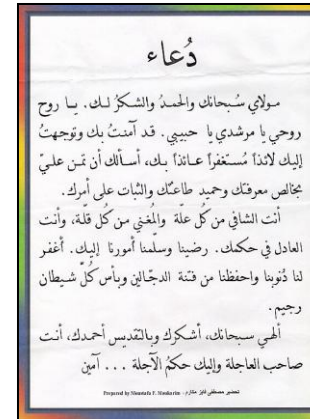 دُعاء
مولاي سُبحانك والحمدُ والشكرُ لك. يا روح
روحي يا مرشدي يا حبيبي. قد آمنتُ بك وتوجهتُ
إليك لائذاً مُستغفراً عائذاً بك، أسألك أن تمن عليّ
بخالص معرفتك وحميد طاعتك والثبات على أمرك.
أنت الشافي من كل علّة والمُغني من كل قلة، وأنت
العادل في حكمك. رضينا وسلّمنا أمورنا إليك. أغفر
لنا ذُنوبنا واحفظنا من فتنة الدجّالين وبأس كلّ شيطان
رجيم.
ألهي سبحانك، أشكرك وبالتقديس أحمدك، أنت
صاحب العاجلة وإليك حكمُ الآجلة ... آمين
Prepared by Moustafa F. Moukarim تحضير مصطفى فايز مكارم